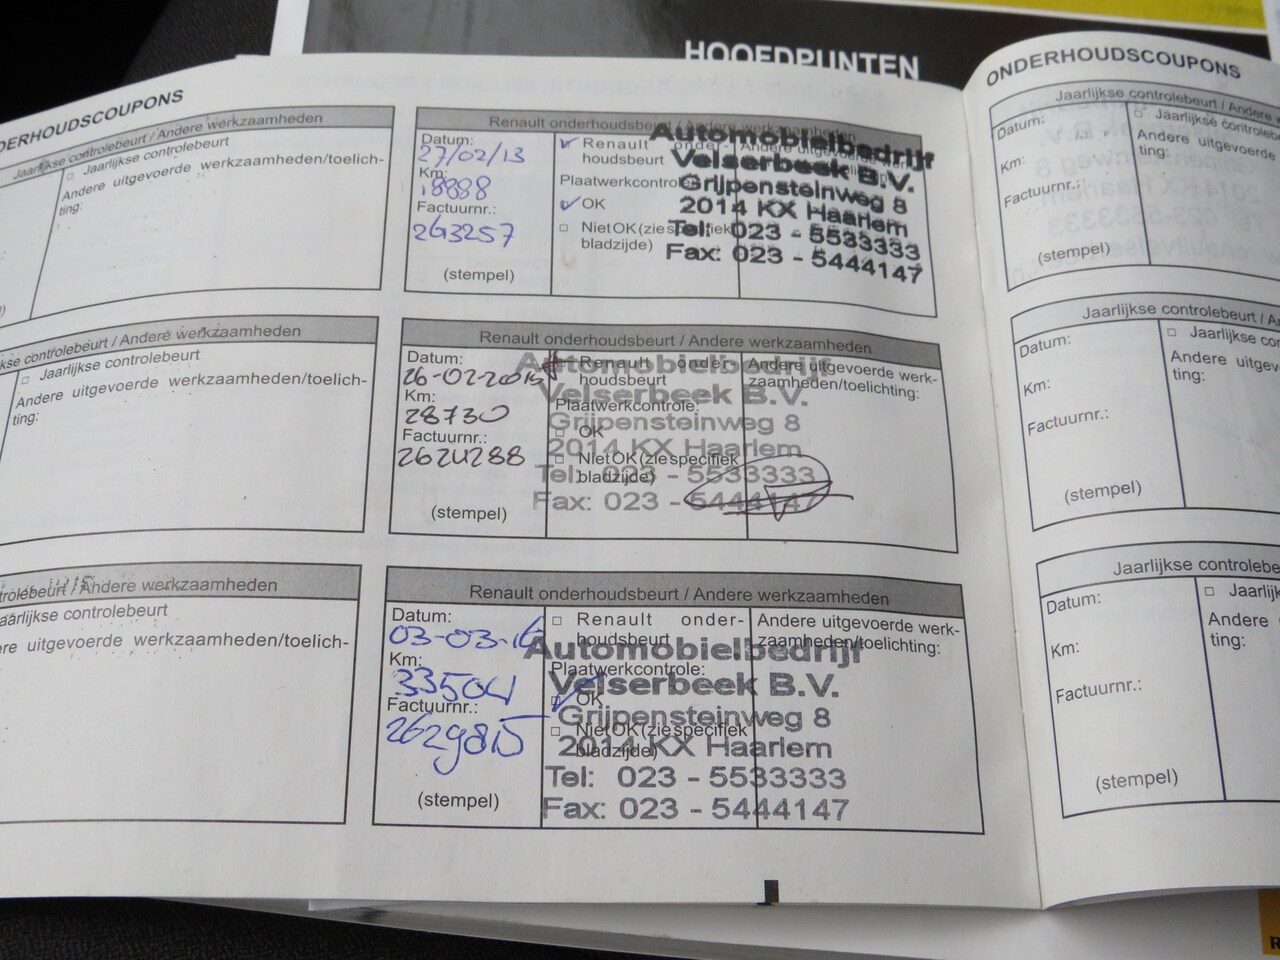 HOOFDPUNTEN
ONDERHOUDSCOUPONS
Jaarlijkse controlebeurt / Andere werkzaamheden
□ Jaarlijkse controlebeurt
Andere uitgevoerde werkzaamheden/toelich-
ting:
Renault onderhoudsbeurt / Andere werkzaamheden
Datum:
27/02/13
Km:
18888
Factuurnr.:
263257
(stempel)
Renault onder-
houdsbeurt
Plaatwerkcontrole
OK
□ Niet OK (zie specifiek
bladzijde)
Automobielbedrijf
Velserbeek B.V.
Grijpensteinweg 8
2014 KX Haarlem
Tel: 023 - 5533333
Fax: 023 - 5444147
controlebeurt / Andere werkzaamheden
□ Jaarlijkse controlebeurt
Andere uitgevoerde werkzaamheden/toelich-
ting:
Renault onderhoudsbeurt / Andere werkzaamheden
Datum:
26-02-2015
Km:
28730
Factuurnr.:
2624288
(stempel)
Renault onder-
houdsbeurt
Plaatwerkcontrole:
□ OK
□ Niet OK (zie specifiek
bladzijde)
Andere uitgevoerde werk-
zaamheden/toelichting:
Automobielbedrijf
Velserbeek B.V.
Grijpensteinweg 8
2014 KX Haarlem
Tel: 023 - 5533333
Fax: 023 - 5444147
/ Andere werkzaamheden
controlebeurt
uitgevoerde werkzaamheden/toelich-
Renault onderhoudsbeurt / Andere werkzaamheden
Datum:
03-03-16
Km:
33504
Factuurnr.:
2629815
(stempel)
□ Renault onder-
houdsbeurt
Plaatwerkcontrole:
□ OK
□ Niet OK (zie specifiek
bladzijde)
Andere uitgevoerde werk-
zaamheden/toelichting:
Automobielbedrijf
Velserbeek B.V.
Grijpensteinweg 8
2014 KX Haarlem
Tel: 023 - 5533333
Fax: 023 - 5444147
ONDERHOUDSCOUPONS
Jaarlijkse controlebeurt / Andere
Datum:
Km:
Factuurnr.:
(stempel)
□ Jaarlijkse
Andere uitgevoerde
ting:
Jaarlijkse controlebeurt /
Datum:
Km:
Factuurnr.:
(stempel)
□ Jaarlijkse
Andere
ting:
Jaarlijkse
Datum:
Km:
Factuurnr.:
(stempel)
□
Andere
ting: